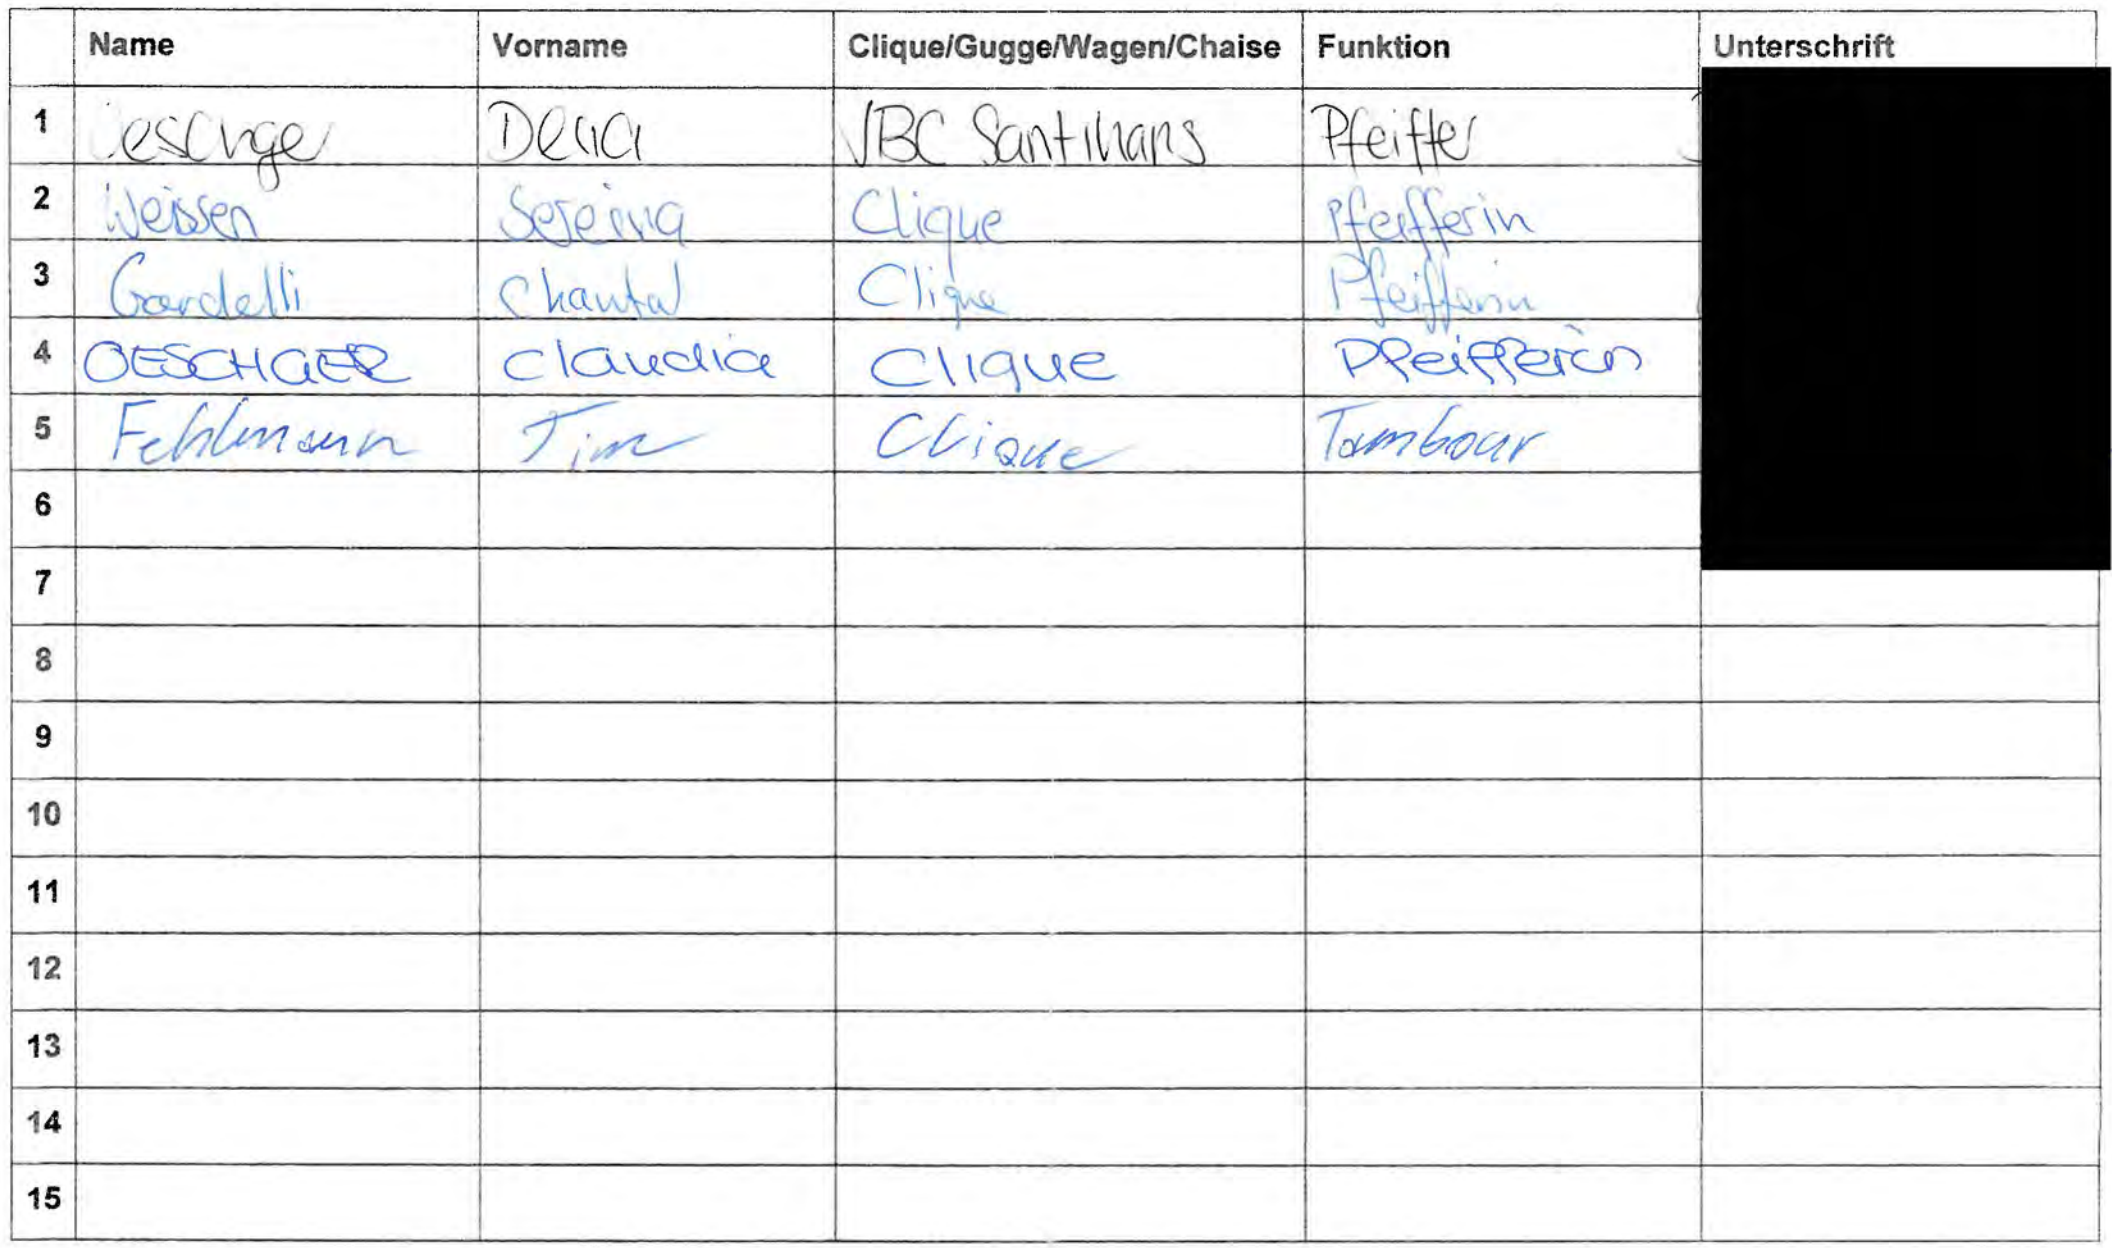 Name Vorname Clique/Gugge/Wagen/Chaise Funktion Unterschrift
1 Oeschger Delia VBC Santihans Pfeiffer
2 Weissen Sereina Clique Pfeifferin
3 Gardelli Chantal Clique Pfeifferin
4 OESCHGER Claudia Clique Pfeifferin
5 Fehlmann Tim Clique Tambour
6
7
8
9
10
11
12
13
14
15